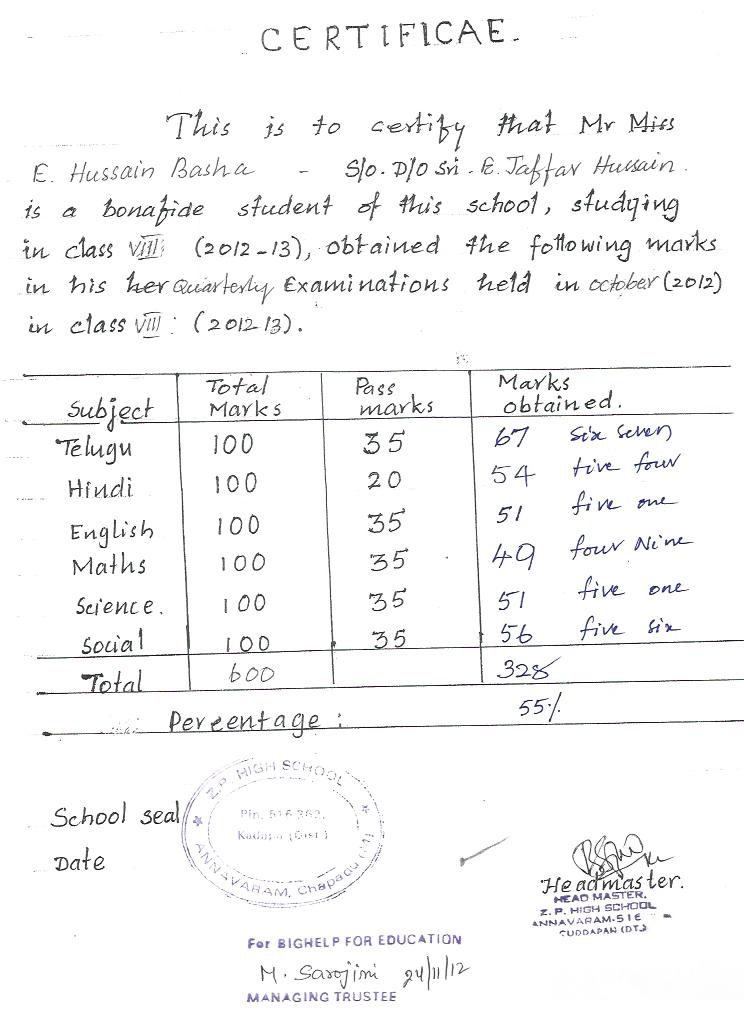 CERTIFICAE.
This is to certify that Mr Miss
E. Hussain Basha - S/o. D/o Sri. E. Jaffar Hussain.
is a bonafide student of this school, studying
in class VIII: (2012-13), obtained the following marks
in his her Quarterly Examinations held in october (2012)
in class VIII: (2012-13).
Subject Total Marks Pass marks Marks obtained.
Telugu 100 35 67 Six Seven
Hindi 100 20 54 five four
English 100 35 51 five one
Maths 100 35 49 four Nine
Science. 100 35 51 five one
Social 100 35 56 five six
Total 600 328
Percentage: 55%
School seal
Date
Z.P. HIGH SCHOOL
Pin. 516 362.
Kadapa (Dist)
ANNAVARAM, Chapadu (M)
Headmaster.
HEAD MASTER,
Z. P. HIGH SCHOOL
ANNAVARAM-516
CUDDAPAH (DT.)
For BIGHELP FOR EDUCATION
M. Sarojini 24/11/12
MANAGING TRUSTEE